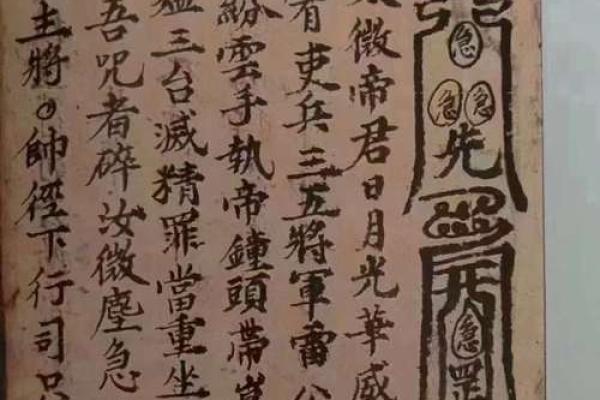 急
急急
先
急
罡
微帝君日月光華威
有吏兵三五將軍雷公
紛雲手執帝鐘頭帶
三台滅精罪當重坐
吾咒者碎汝微塵急
主將帥從下行司